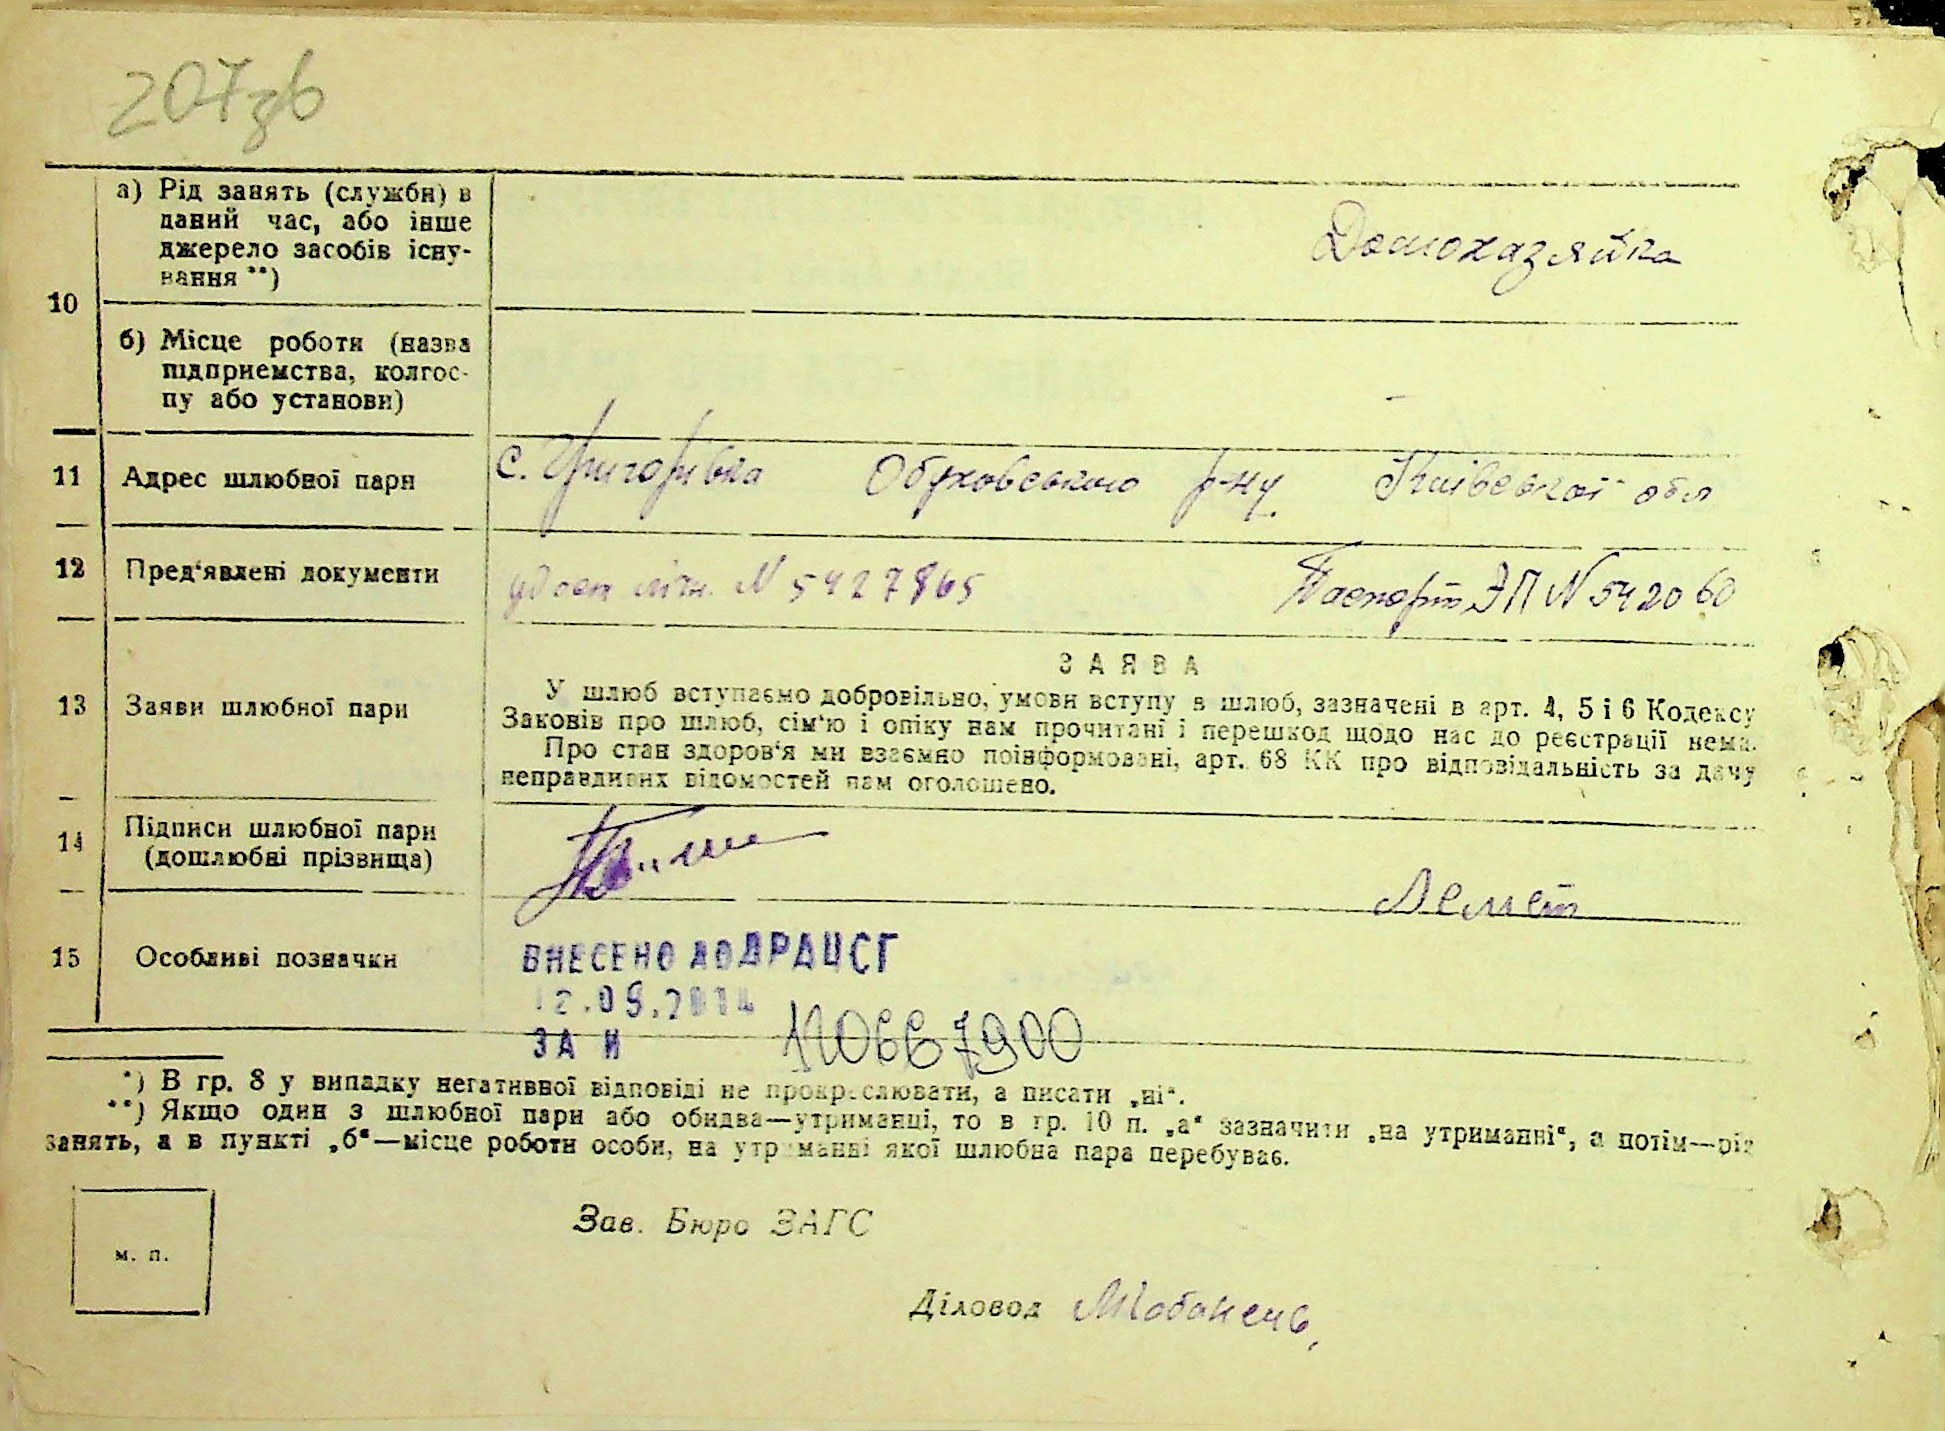 207зв
10
а) Рід занять (служби) в
даний час, або інше
джерело засобів існу-
вання **)
Домохазяйка
б) Місце роботи (назва
підприємства, колгос-
пу або установи)
-
11 Адрес шлюбної пари с. Григорівка Обуховського р-ну Київської обл
12 Пред'явлені документи удост лічн. N 5427865 Паспорт ЭП N 542060
13 Заяви шлюбної пари
ЗАЯВА
У шлюб вступаємо добровільно, умови вступу в шлюб, зазначені в арт. 4, 5 і 6 Кодексу
Законів про шлюб, сім'ю і опіку нам прочитані і перешкод щодо нас до реєстрації нема.
Про стан здоров'я ми взаємно поінформовані, арт. 68 КК про відповідальність за дачу
неправдивих відомостей нам оголошено.
14 Підписи шлюбної пари
(дошлюбні прізвища)
15 Особливі позначки
ВНЕСЕНО ДО ДРАЦСГ
12.09.2014
ЗА N
*) В гр. 8 у випадку негативної відповіді не прокреслювати, а писати „ні“.
**) Якщо один з шлюбної пари або обидва—утриманці, то в гр. 10 п. „а“ зазначити „на утриманні“, а потім—рід
занять, а в пункті „б“—місце роботи особи, на утриманні якої шлюбна пара перебуває.
м. п.
Зав. Бюро ЗАГС
Діловод